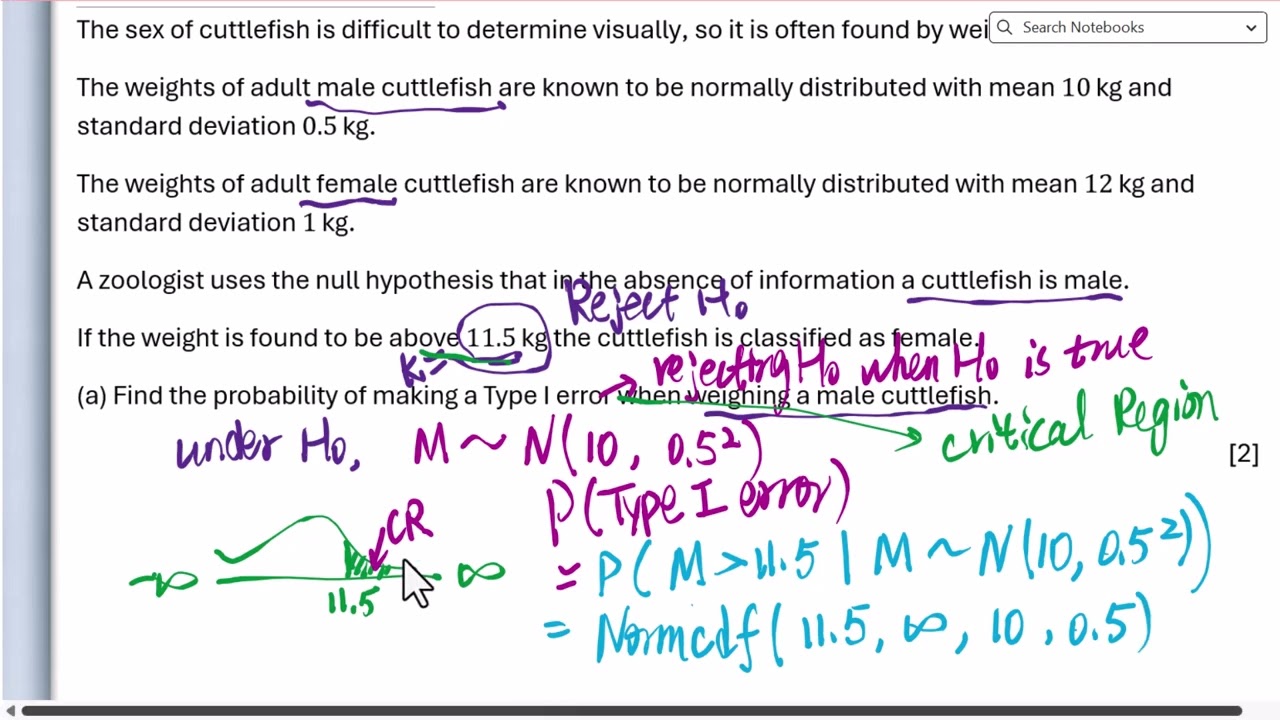 The sex of cuttlefish is difficult to determine visually, so it is often found by wei
Search Notebooks
The weights of adult male cuttlefish are known to be normally distributed with mean 10 kg and
standard deviation 0.5 kg.
The weights of adult female cuttlefish are known to be normally distributed with mean 12 kg and
standard deviation 1 kg.
A zoologist uses the null hypothesis that in the absence of information a cuttlefish is male.
Reject H₀
If the weight is found to be above 11.5 kg the cuttlefish is classified as female.
K=
rejecting H₀ when H₀ is true
(a) Find the probability of making a Type I error when weighing a male cuttlefish.
critical Region
[2]
under H₀, M ~ N(10, 0.5²)
P(Type I error)
CR
= P(M > 11.5 | M ~ N(10, 0.5²))
-∞ ∞
11.5
= Normcdf(11.5, ∞, 10, 0.5)